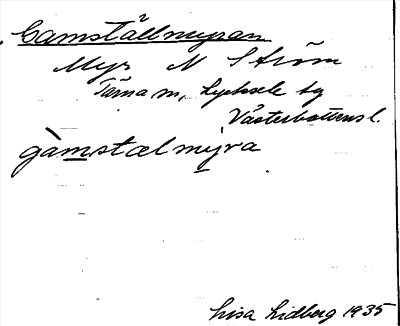 Gamställmyran
Myr N Ström
Tärna sn, Lycksele tg
Västerbottens l.
gàmstælmyra
Lisa Lidberg 1935